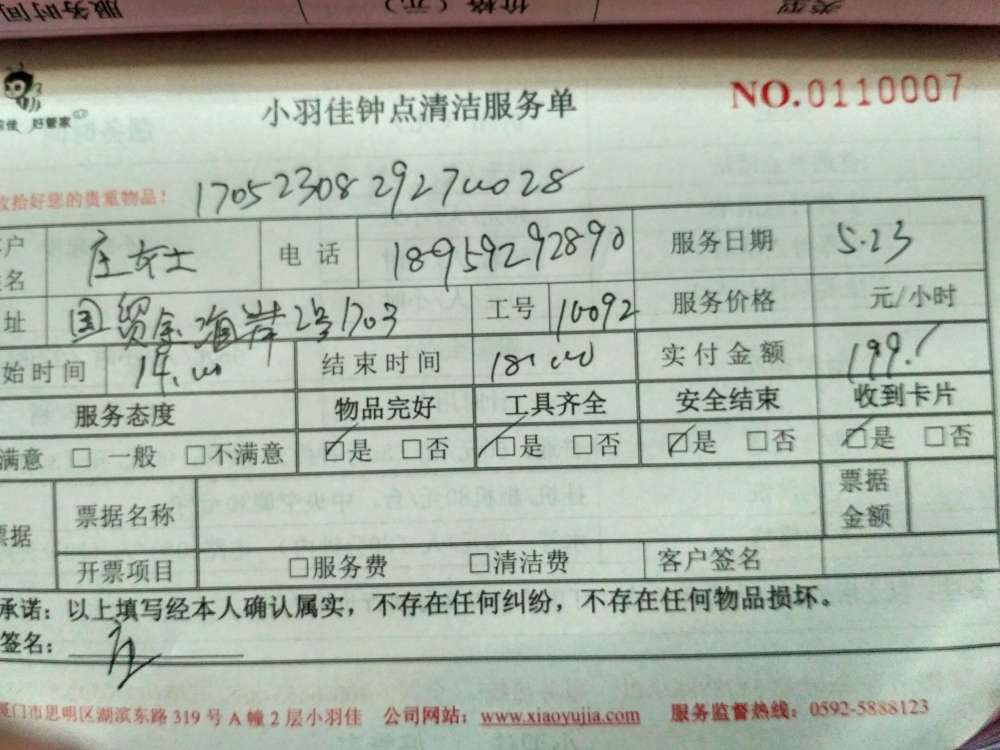 服务时间 价格（元） 类型
佳 好管家
小羽佳钟点清洁服务单
NO.0110007
收拾好您的贵重物品！
户名 庄女士 电话 18959292890 服务日期 5.23
址 国贸金海岸2号1703 工号 10092 服务价格 元/小时
始时间 14:00 结束时间 18:00 实付金额 199.
服务态度 物品完好 工具齐全 安全结束 收到卡片
满意 □ 一般 □不满意 ☑是 □否 ☑是 □否 ☑是 □否 ☑是 □否
票据 票据名称 票据金额
开票项目 □服务费 □清洁费 客户签名
承诺：以上填写经本人确认属实，不存在任何纠纷，不存在任何物品损坏。
签名： 庄
厦门市思明区湖滨东路 319 号 A 幢 2 层小羽佳 公司网站：www.xiaoyujia.com 服务监督热线：0592-5888123